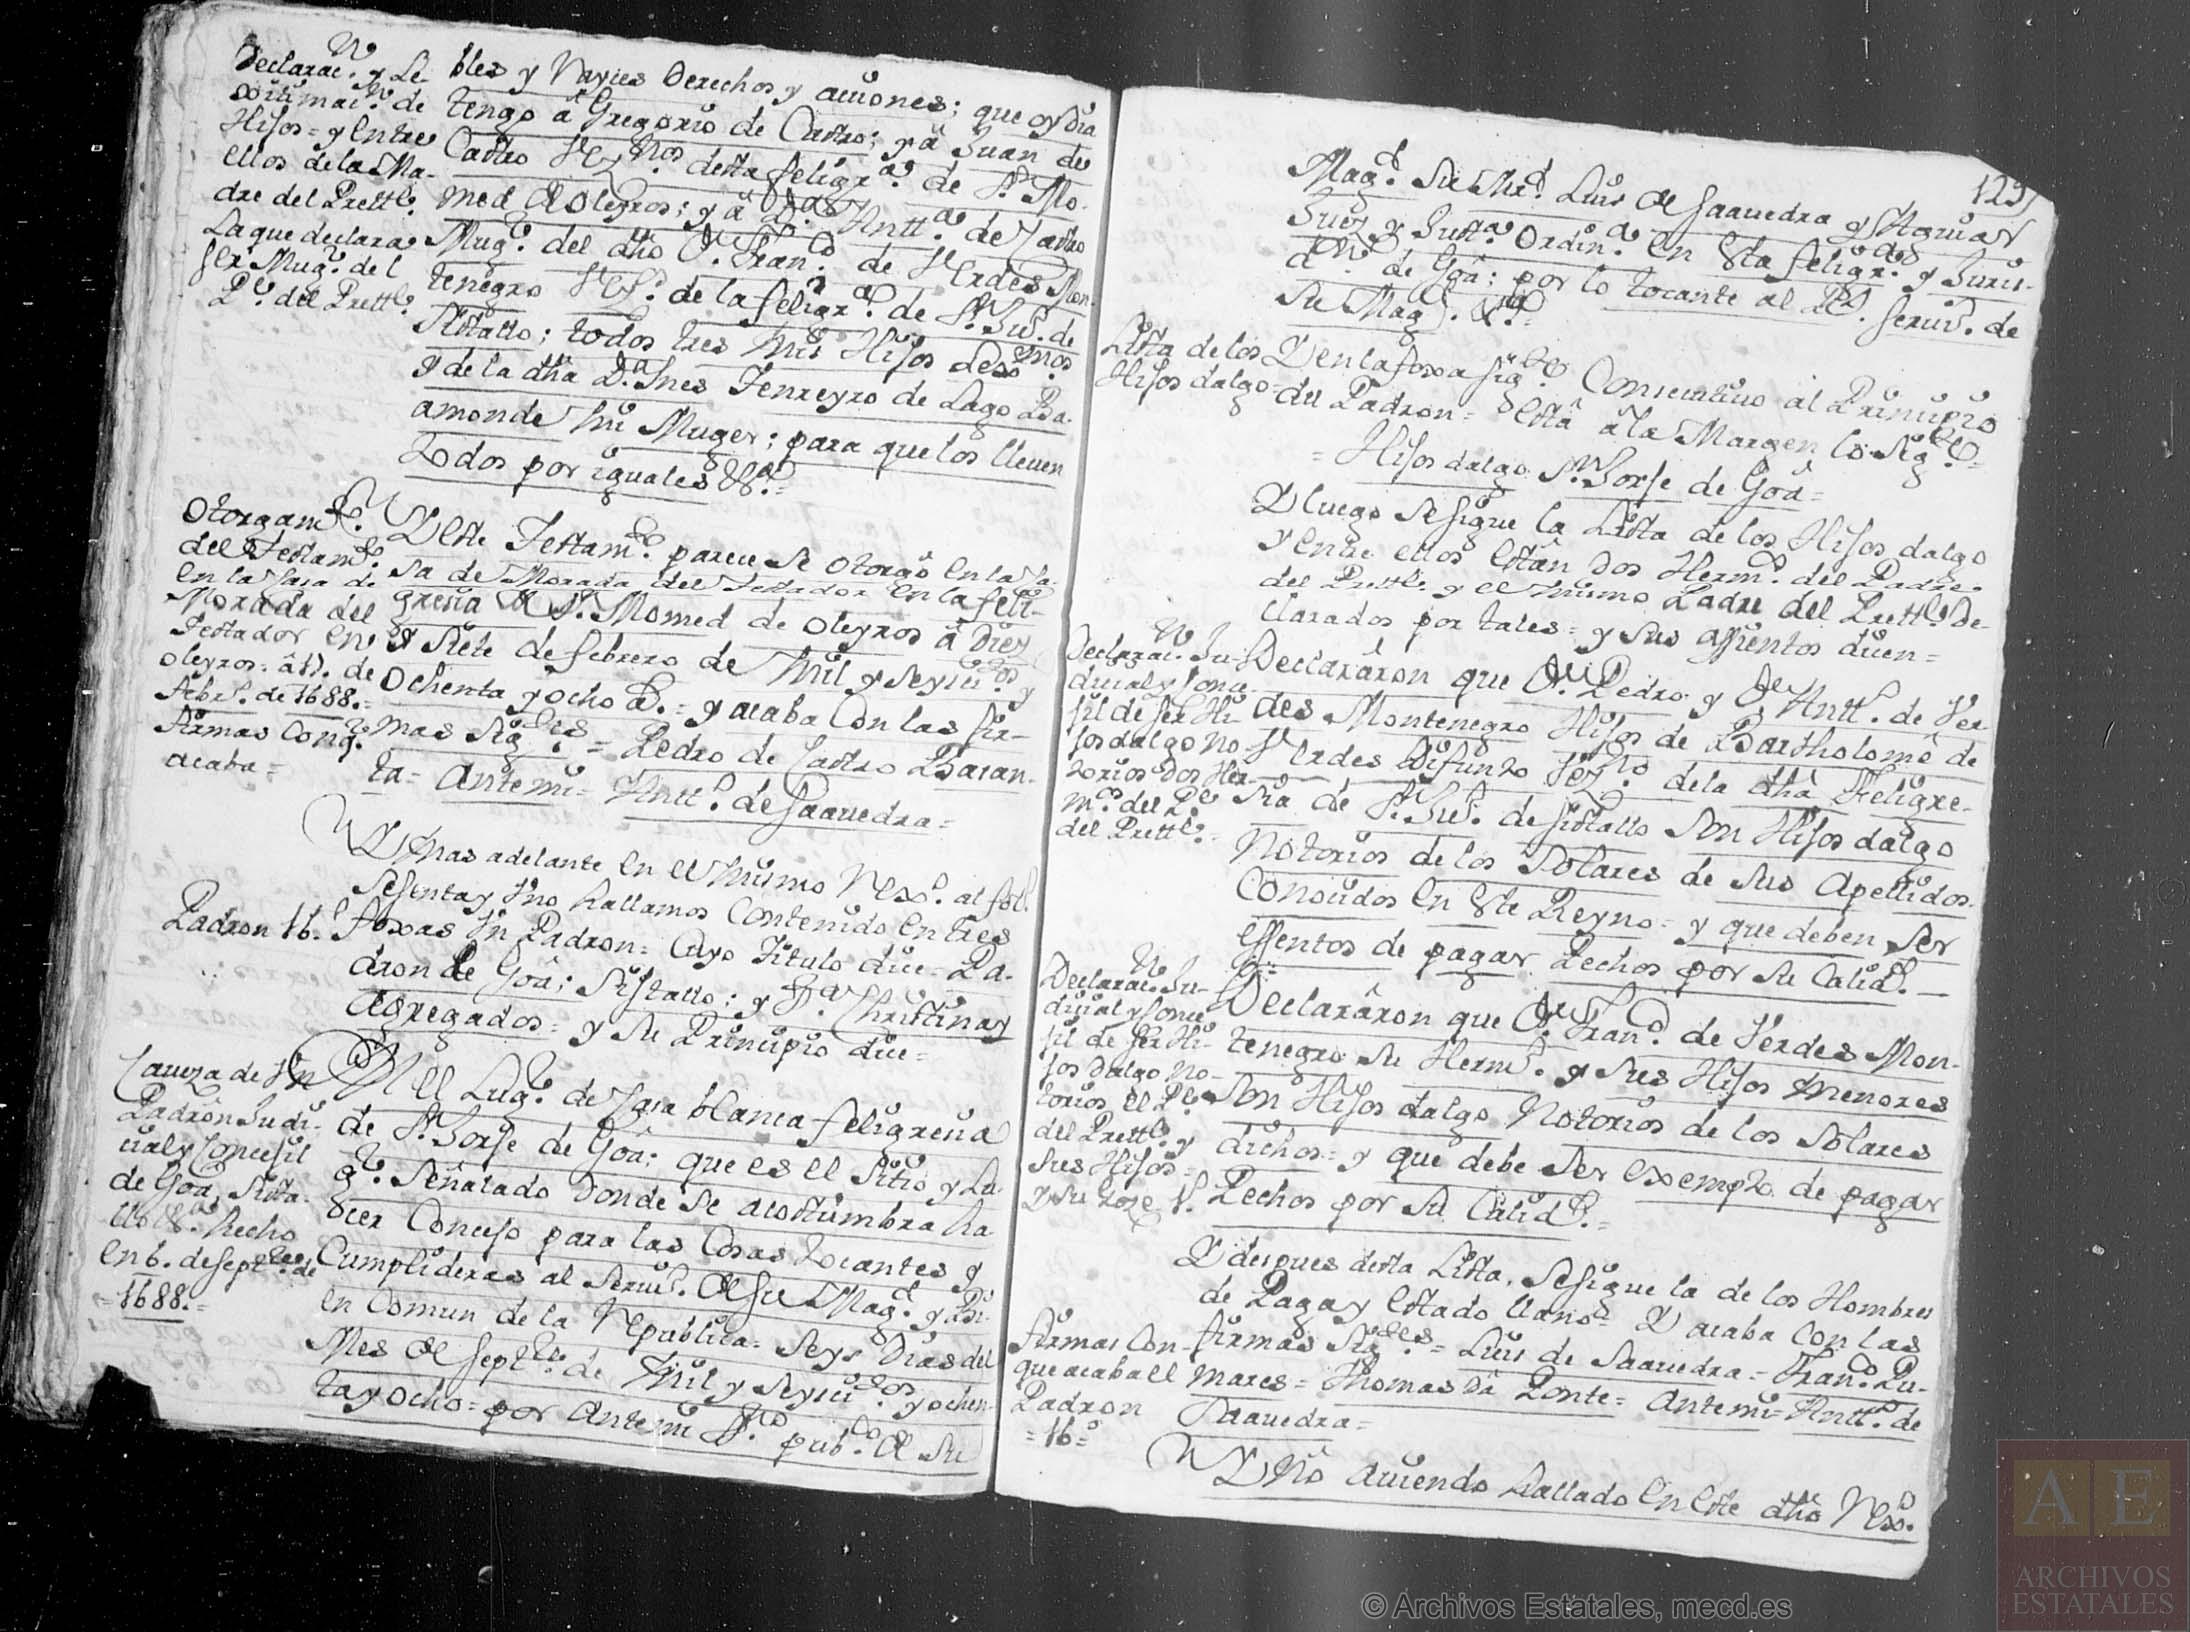 Declarac.n y Le-
xitimac.n de
Hijos = y entre
ellos de la Ma-
dre del Prett.e
La que declara
ser Mug.r del
P.e del Prett.e
bles y Rayces derechos y acciones; que oy dia
tengo â Gregorio de Castro; y â Juan de
Castro Vez.nos desta feligr.a de S.n Mo-
med de Oleyros; y â D.a Antt.a de Castro
Mug.r del dho D.n Fran.co de Verdes Mon-
tenegro Vez.o de la feligr.a de S.n Ju.o de
Sistallo; todos tres mis Hijos Lex.mos
y de la dha D.a Ines Tenreyro de Lago Ba-
amonde mi Muger; para que los lleven
todos por iguales &.a =
Otorgam.to
del Testam.to
en la Casa de
Morada del
Testador en
Oleyros = â 17. de
Febr.o de 1688. =
Firmas con q.e
acaba =
Y este Testam.to parece se otorgô en la Ca-
sa de Morada del Testador en la feli-
gresia de S.n Momed de Oleyros â diez
y siete de febrero de mil y seysci.tos y
ochenta y ocho a.s = y acaba con las fir-
mas sig.tes = Pedro de Castro Basan-
ta = Antemi = Antt.o de Saavedra =
Y mas adelante en el mismo Rex.o al fol.
sesenta y Vno hallamos contenido en tres
Padron 16.o
foxas Vn Padron = Cuyo Titulo dice = Pa-
dron de Goâ; Sistallo; y S.ta Christina y
Agregados = y su Principio dice =
Caveza de Vn
Padrôn Judi-
cial y Concejil
de Goâ, Sista-
llo &.a hecho
en 6. de Sept.bre de
= 1688. =
En el Lug.r de Casa blanca feligresia
de S.n Jorje de Goâ; que es el Sitio y Lu-
g.r Señalado donde se acostumbra ha-
cer Concejo para las Cosas tocantes y
Cumplideras al Servi.o de su Mag.d y Bi-
en Comun de la Republica = Seys dias del
Mes de Sept.bre de mil y seysci.tos y ochen-
ta y ocho = por Antemi S.no pub.co de su
129
Mag.d su Mrd. Luis de Saavedra y Aguiar
Juez y Justt.a Ordin.a en esta feligr.a y Juris-
d.n de Goâ; por lo tocante al R.l servi.o de
su Mag.d &.a =
Lista de los
Hijos dalgo =
Y en la foxa sig.te Consecutivo al Principio
del Padron = está â la Margen lo sig.te =
= Hijos dalgo S.n Jorje de Goâ =
Y luego se sigue la Lista de los Hijos dalgo
y entre ellos estân dos Herm.s del Padre
del Prett.e y el mismo Padre del Prett.e De-
clarados por tales = y sus assientos dicen =
Declarac.n Ju-
dicial y Conce-
jil de ser Hi-
jos dalgo No-
torios dos Her-
m.os del P.e
del Prett.e =
Declararon que D.n Pedro y D.n Antt.o de Ver-
des Montenegro Hijos de Bartholomê de
Verdes difunto Vez.no de la dha Feligre-
sia de S.n Ju.o de Sistallo son Hijos dalgo
Notorios de los Solares de sus Apellidos
Conocidos en este Reyno = y que deben ser
essentos de pagar Pechos por su Calid.d =
Declarac.n Ju-
dicial y Conce-
jil de ser Hi-
jos dalgo No-
torios el P.e
del Prett.e y
sus Hijos =
Declararon que D.n Fran.co de Verdes Mon-
tenegro su Herm.o y sus Hijos menores
son Hijos dalgo Notorios de los Solares
dichos = y que debe ser exempto de pagar
Pechos por su Calid.d =
Y despues desta Lista, se sigue la de los Hombres
de Paga y estado llano = Y acaba con las
Firmas con
que acaba el
Padron
= 16.o =
firmas sig.tes = Luis de Saavedra = Fran.co Pu-
mares = Thomas Dâ Ponte = Antemi = Antt.o de
Saavedra =
Y nô aviendo hallado en este dho Rex.o
© Archivos Estatales, mecd.es
AE
ARCHIVOS
ESTATALES